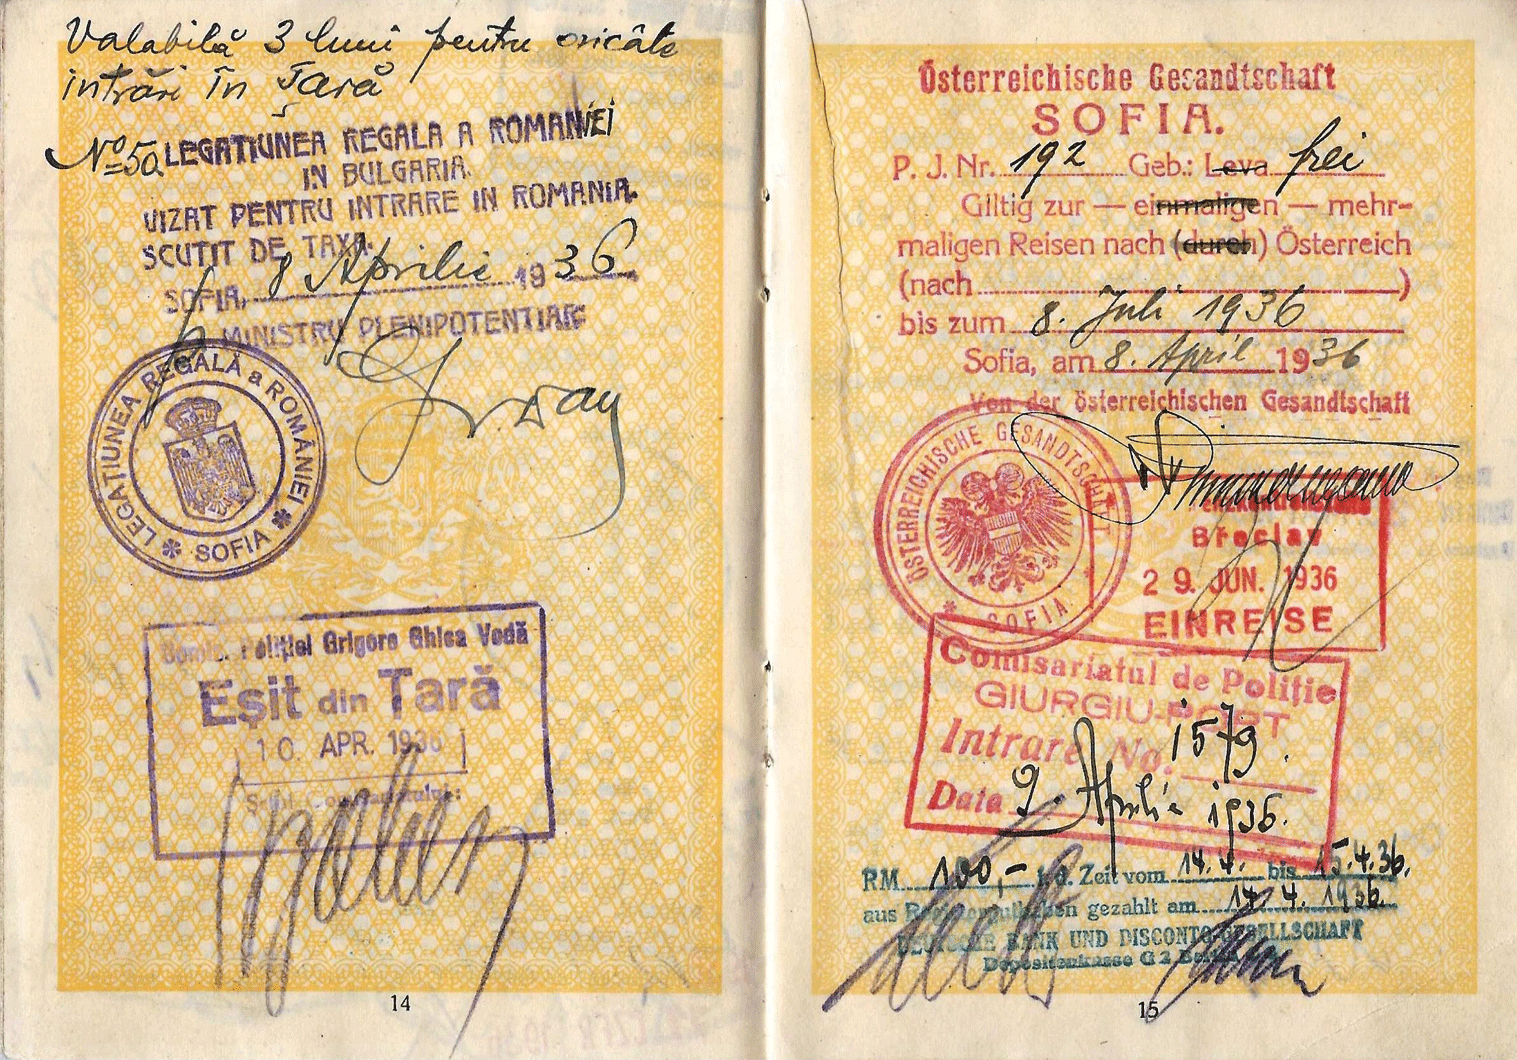 Valabilă 3 luni pentru oricâte
intrări în Țară
Nº 50
LEGATIUNEA REGALA A ROMANIEI
IN BULGARIA.
VIZAT PENTRU INTRARE IN ROMANIA.
SCUTIT DE TAXA.
SOFIA, 8 Aprilie 1936
MINISTRU PLENIPOTENTIAR
LEGATIUNEA REGALĂ a ROMÂNIEI
* SOFIA *
Comis. Poliției Grigore Ghica Vodă
Eșit din Țară
10. APR. 1936
14
Österreichische Gesandtschaft
SOFIA.
P. J. Nr. 192 Geb.: Leva frei
Giltig zur — einmaligen — mehr-
maligen Reisen nach (durch) Österreich
(nach )
bis zum 8. Juli 1936
Sofia, am 8. April 1936
Von der österreichischen Gesandtschaft
ÖSTERREICHISCHE GESANDTSCHAFT
* SOFIA *
Břeclav
29. JUN. 1936
EINREISE
Comisariatul de Poliție
GIURGIU-PORT
Intrare No. 1579.
Data 9. Aprilie 1936.
RM 100,- f. d. Zeit vom 14.4. bis 15.4.36.
aus Registerguthaben gezahlt am 14.4.1936.
DEUTSCHE BANK UND DISCONTO-GESELLSCHAFT
Depositenkasse G 2
15